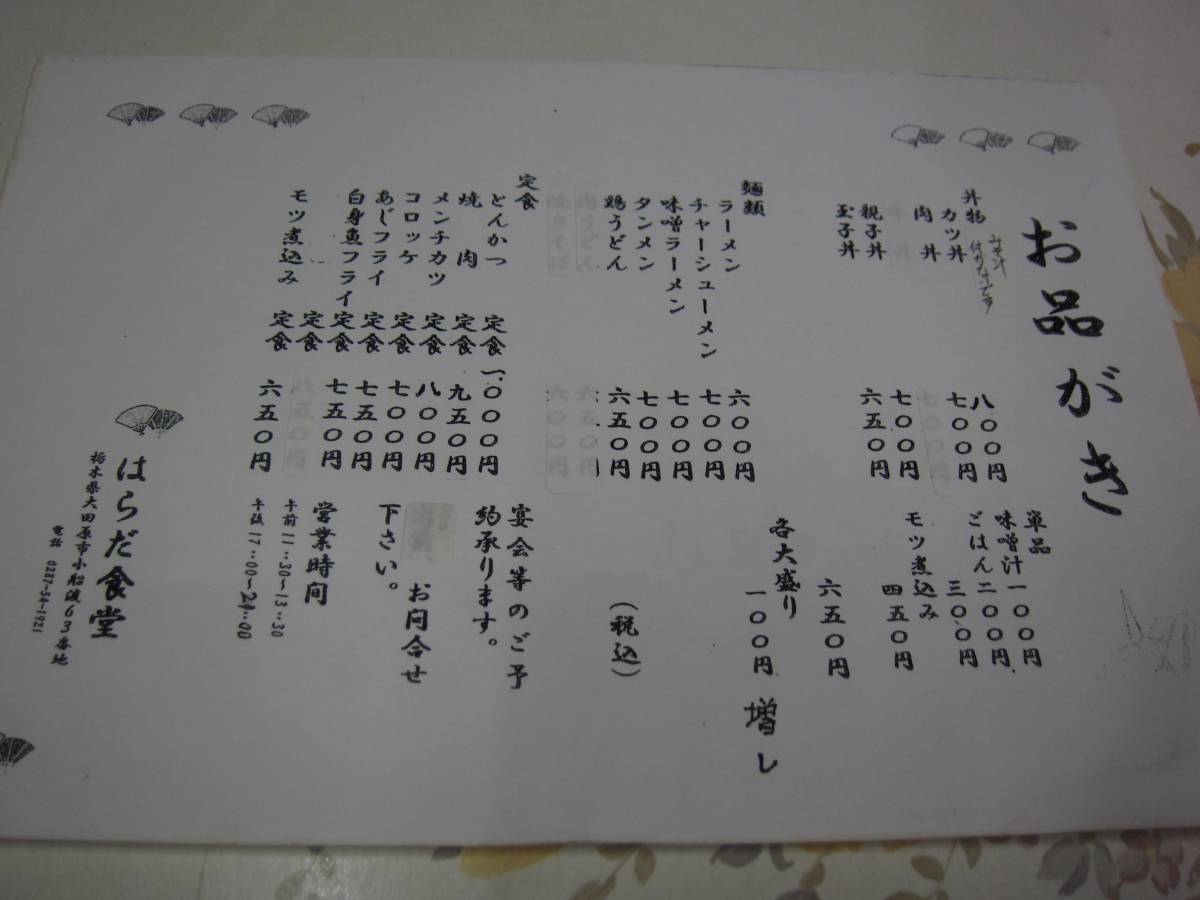 お品がき
丼物
みそ汁
カツ丼 八〇〇円
肉 丼 七〇〇円
牛丼 七〇〇円
親子丼 七〇〇円
玉子丼 六五〇円
麺類
ラーメン 六〇〇円
チャーシューメン 七〇〇円
味噌ラーメン 七〇〇円
タンメン 七〇〇円
鶏うどん 六五〇円
肉うどん 六五〇円
焼きそば 六〇〇円
定食
とんかつ 定食 一、〇〇〇円
焼 肉 定食 九五〇円
メンチカツ 定食 八〇〇円
コロッケ 定食 七〇〇円
あじフライ 定食 七五〇円
白身魚フライ 定食 七五〇円
定食 八五〇円
モツ煮込み 定食 六五〇円
単品
味噌汁 一〇〇円
ごはん 二〇〇円
三〇〇円
モツ煮込み
四五〇円
六五〇円
各大盛り
一〇〇円増し
（税込）
宴会等のご予
約承ります。
お問合せ
下さい。
営業時間
午前 11:30~13:30
午後 17:00~21:00
はらだ食堂
栃木県大田原市小船渡63番地
電話 0287-54-1921